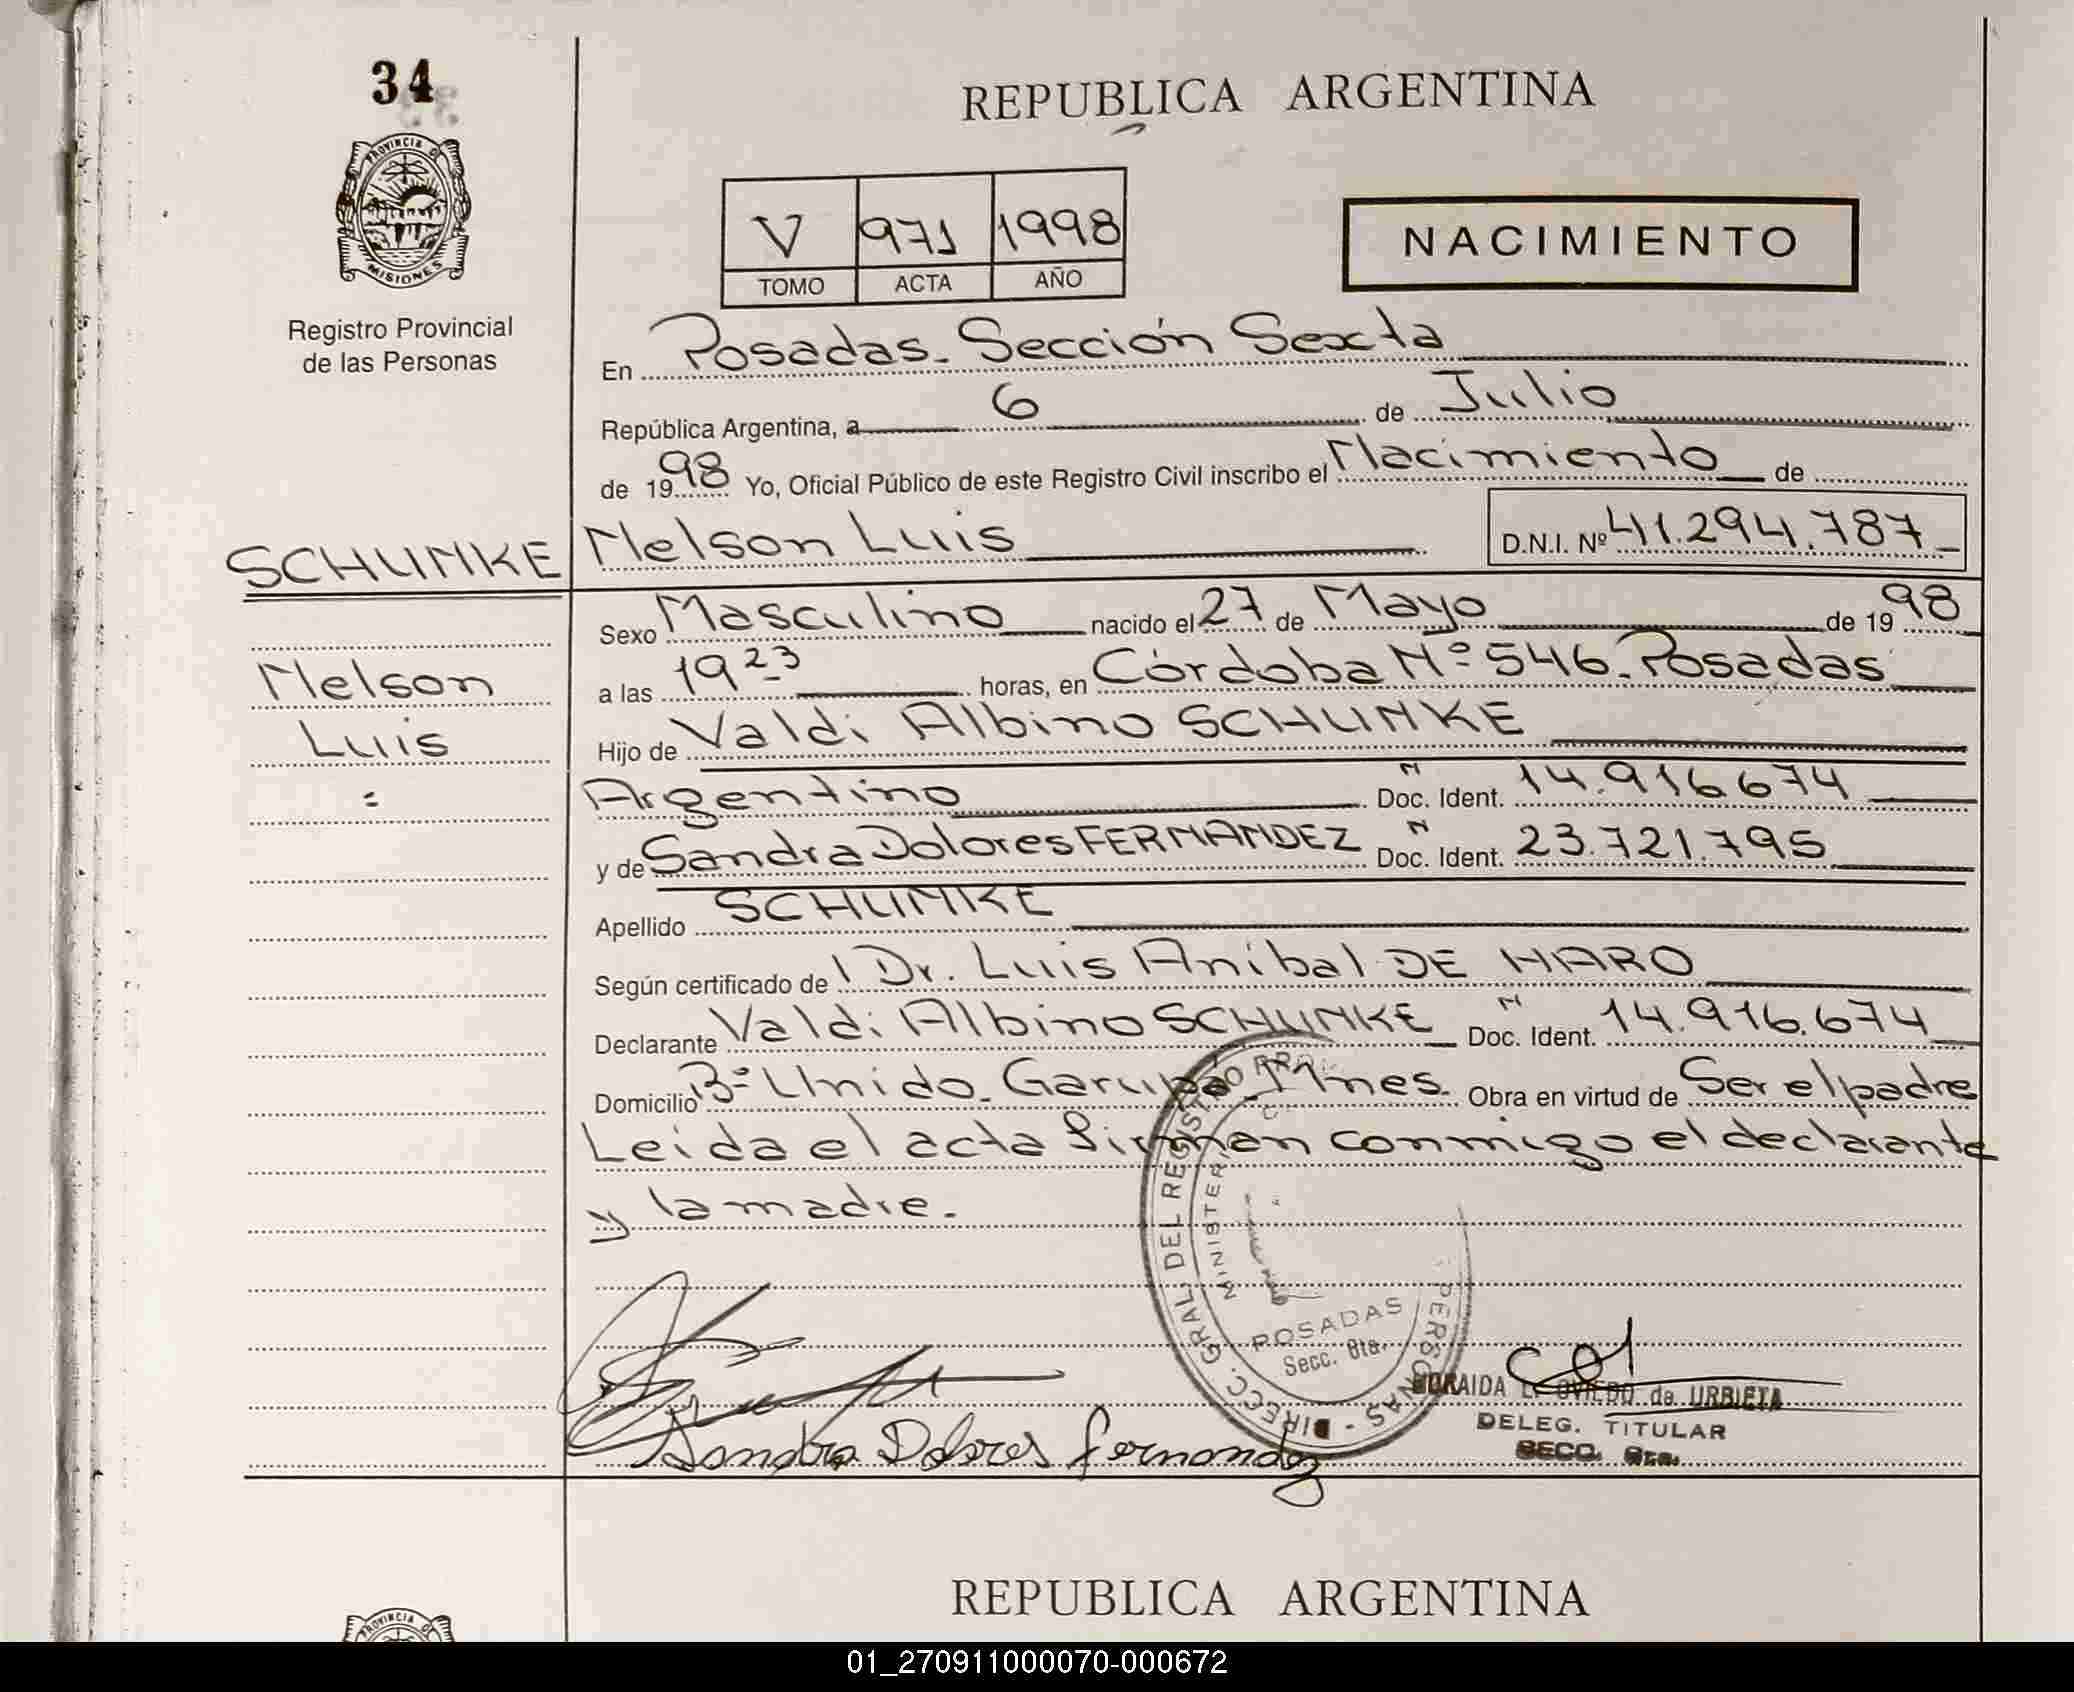 34
REPUBLICA ARGENTINA
PROVINCIA DE
MISIONES
Registro Provincial
de las Personas
V 971 1998
TOMO ACTA AÑO
NACIMIENTO
En Posadas. Sección Sexta
República Argentina, a 6 de Julio
de 1998 Yo, Oficial Público de este Registro Civil inscribo el Nacimiento de
SCHUNKE Nelson Luis D.N.I. Nº 41.294.787
Sexo Masculino nacido el 27 de Mayo de 1998
Nelson
a las 19 23 horas, en Córdoba Nº 546. Posadas
Luis
Hijo de Valdi Albino SCHUNKE
=
Argentino Doc. Ident. N 14.916674
y de Sandra Dolores FERNANDEZ Doc. Ident. N 23.721.795
Apellido SCHUNKE
Según certificado de l Dr. Luis Aníbal DE HARO
Declarante Valdi Albino SCHUNKE Doc. Ident. N 14.916.674
Domicilio Bº Unido. Garupá. Mnes. Obra en virtud de Ser el padre
Leida el acta firman conmigo el declarante
y la madre.
DIRECC. GRAL. DEL REGISTRO PERSONAS
MINISTER
POSADAS
Secc. 6ta.
Sandra Dolores Fernandez
OVIEDO de URBIETA
DELEG. TITULAR
SECC. 6ta.
REPUBLICA ARGENTINA
PROVINCIA DE
01_270911000070-000672